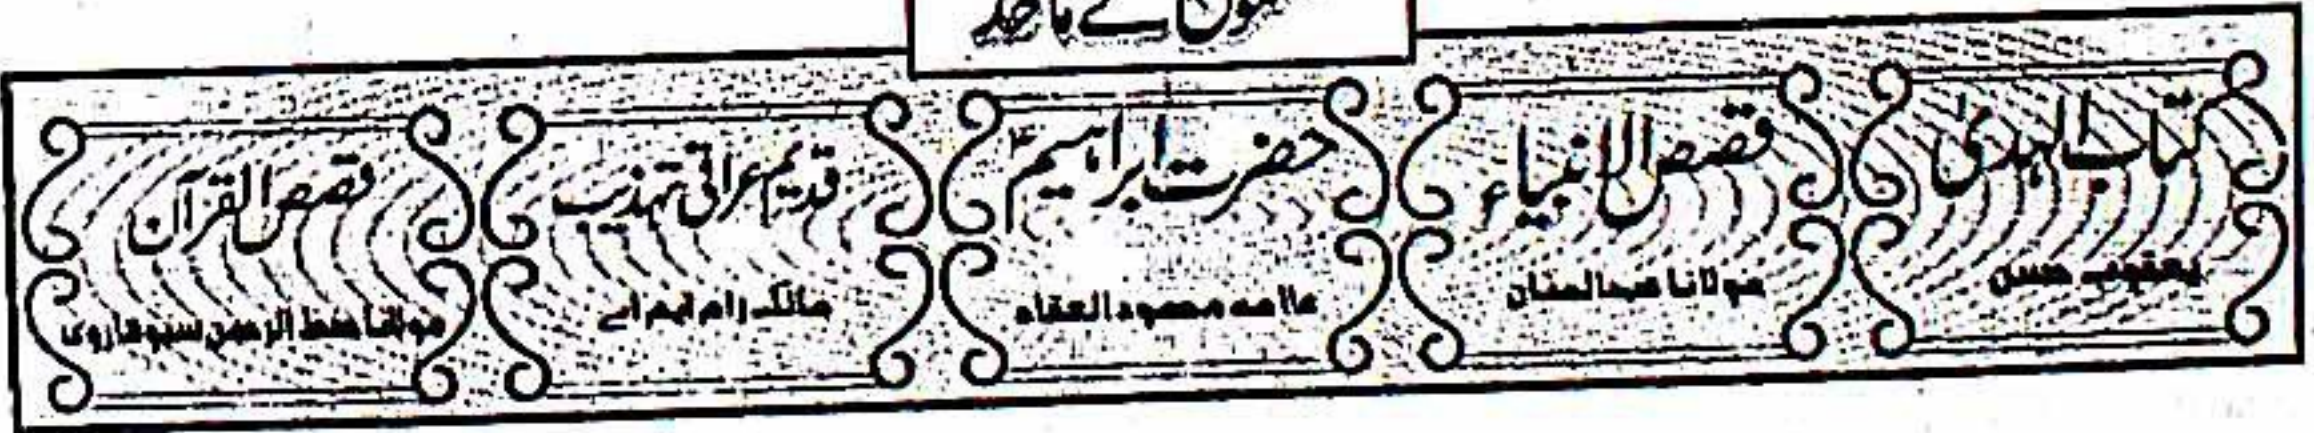 کے ماخذ
کتاب الہدیٰ
یعقوب حسن
قصص الانبیاء
مولانا عبدالمنان
حضرت ابراہیمؑ
علامہ محمود العقاد
قدیم عراقی تہذیب
مالک رام ایم اے
قصص القرآن
مولانا حفظ الرحمن سیوہاروی